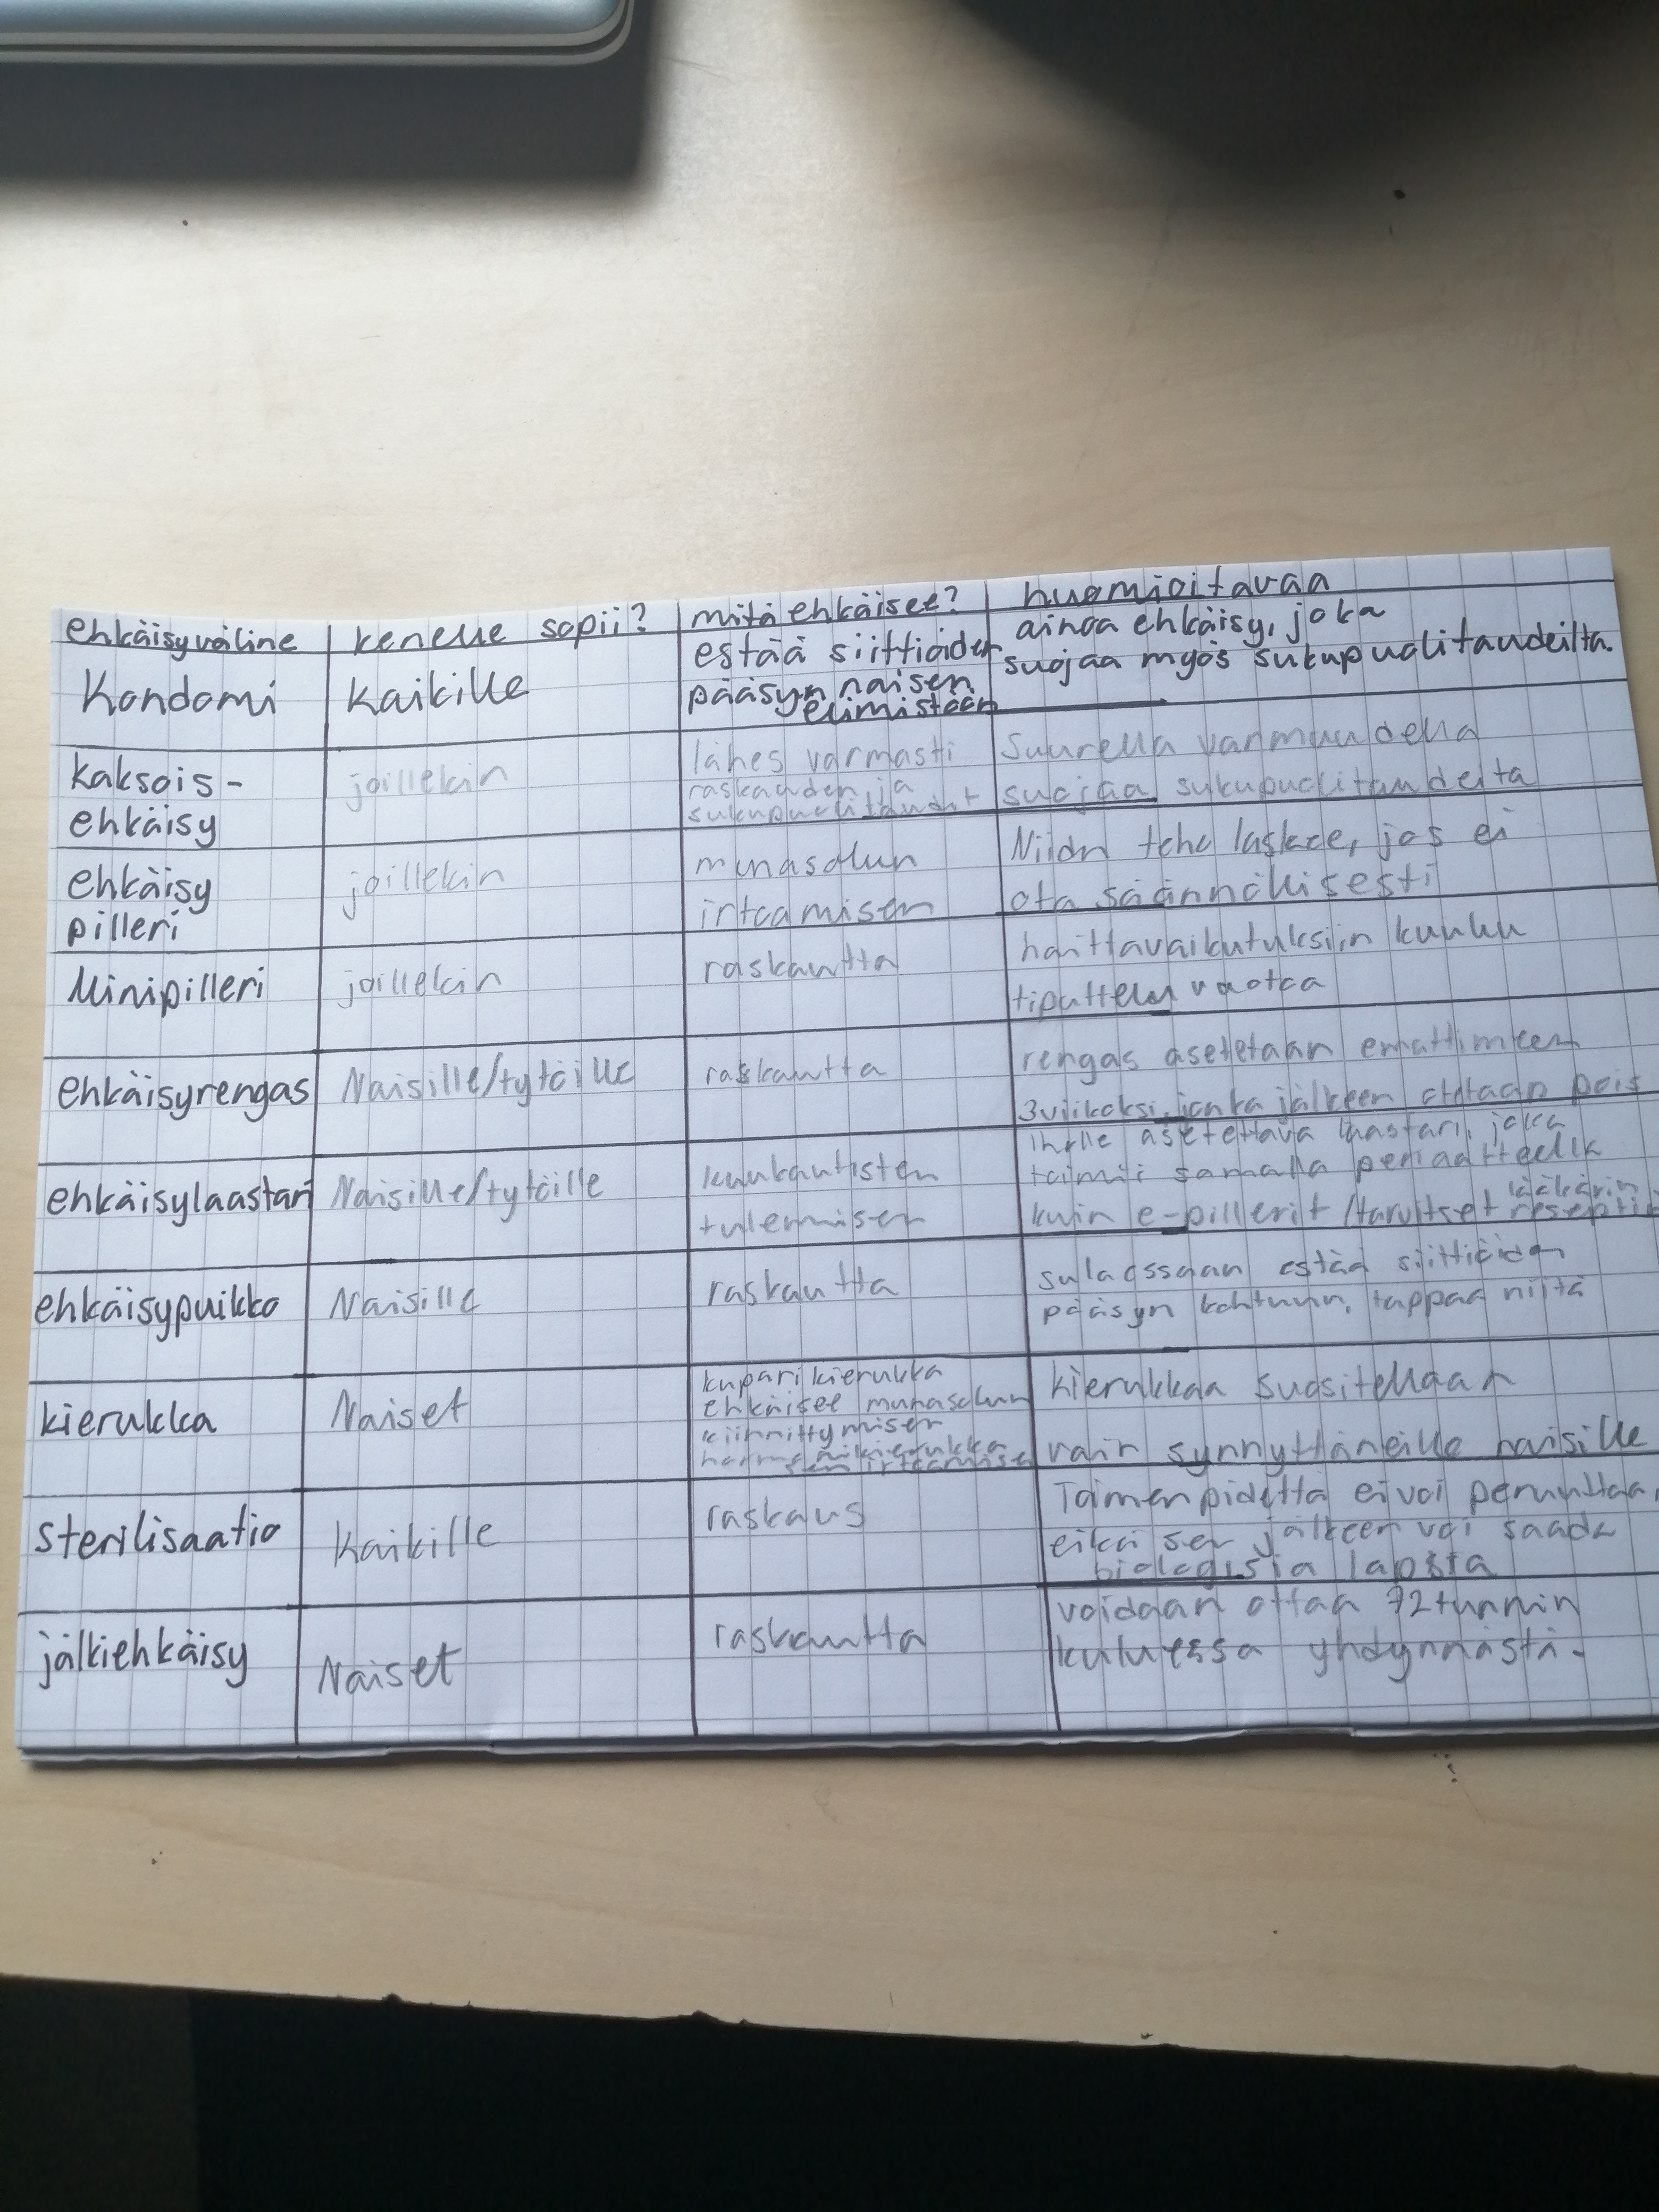 ehkäisyväline
kenelle sopii?
mitä ehkäisee?
huomioitavaa
Kondomi
Kaikille
estää siittiöiden
pääsyn naisen
elimistöön
ainoa ehkäisy, joka
suojaa myös sukupuolitaudeilta.
kaksois-
ehkäisy
joillekin
lähes varmasti
raskauden ja
sukupuolitaudit
Suurella varmuudella
suojaa sukupuolitaudeilta
ehkäisy
pilleri
joillekin
munasolun
irtoamisen
Niiden teho laskee, jos ei
ota säännöllisesti
Minipilleri
joillekin
raskautta
haittavaikutuksiin kuuluu
tiputtelu vuotoa
ehkäisyrengas
Naisille/tytöille
raskautta
rengas asetetaan emättimeen
3viikoksi, jonka jälkeen otetaan pois
ehkäisylaastari
Naisille/tytöille
kuukautisten
tulemisen
iholle asetettava laastari, joka
toimii samalla periaatteella
kuin e-pillerit /tarvitset lääkärin
reseptin
ehkäisypuikko
Naisille
raskautta
sulaessaan estää siittiöiden
pääsyn kohtuun, tappaa niitä
kierukka
Naiset
kuparikierukka
ehkäisee munasolun
kiinnittymisen
hormonikierukka
sen irtoamisen
kierukkaa suositellaan
vain synnyttäneille naisille
sterilisaatio
Kaikille
raskaus
Toimenpidettä ei voi peruuttaa,
eikä sen jälkeen voi saada
biologisia lapsia
jälkiehkäisy
Naiset
raskautta
voidaan ottaa 72tunnin
kuluessa yhdynnästä.